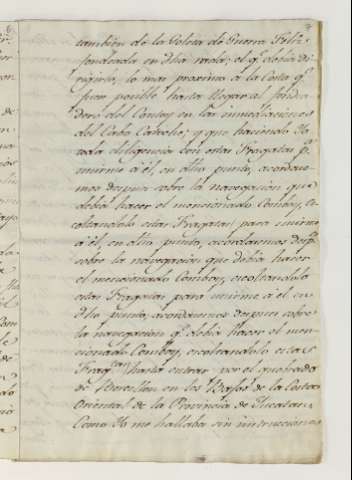 tambien de la Goleta de Guerra Feliz
fondeada en dha rada; el qe. debia di-
rigirse, lo mas proximo á la Costa qe.
fuese posible hasta llegar al fondea-
dero del Contoy en las inmediaciones
del Cabo Catoche; y que haciendo Yo
toda diligencia con estas Fragatas pa.
unirme á él, en dho punto, acordare-
mos despues sobre la navegación que
debia hacer el mencionado Comboy, es-
coltandolo estas Fragatas, para unirme
á él, en dho punto, acordaremos desps.
sobre la navegacion que debia hacer
el mencionado Comboy, escoltandolo
estas Fragatas para unirme á él en
dho punto, acordaremos despues sobre
la navegacion qe. debia hacer el men-
cionado Comboy, escoltandolo estas
Fragtas. hasta entrar por el quebrado
de en los de la Costa
Oriental de la Provincia de Yucatan.
Como Yo me hallaba sin instrucciones